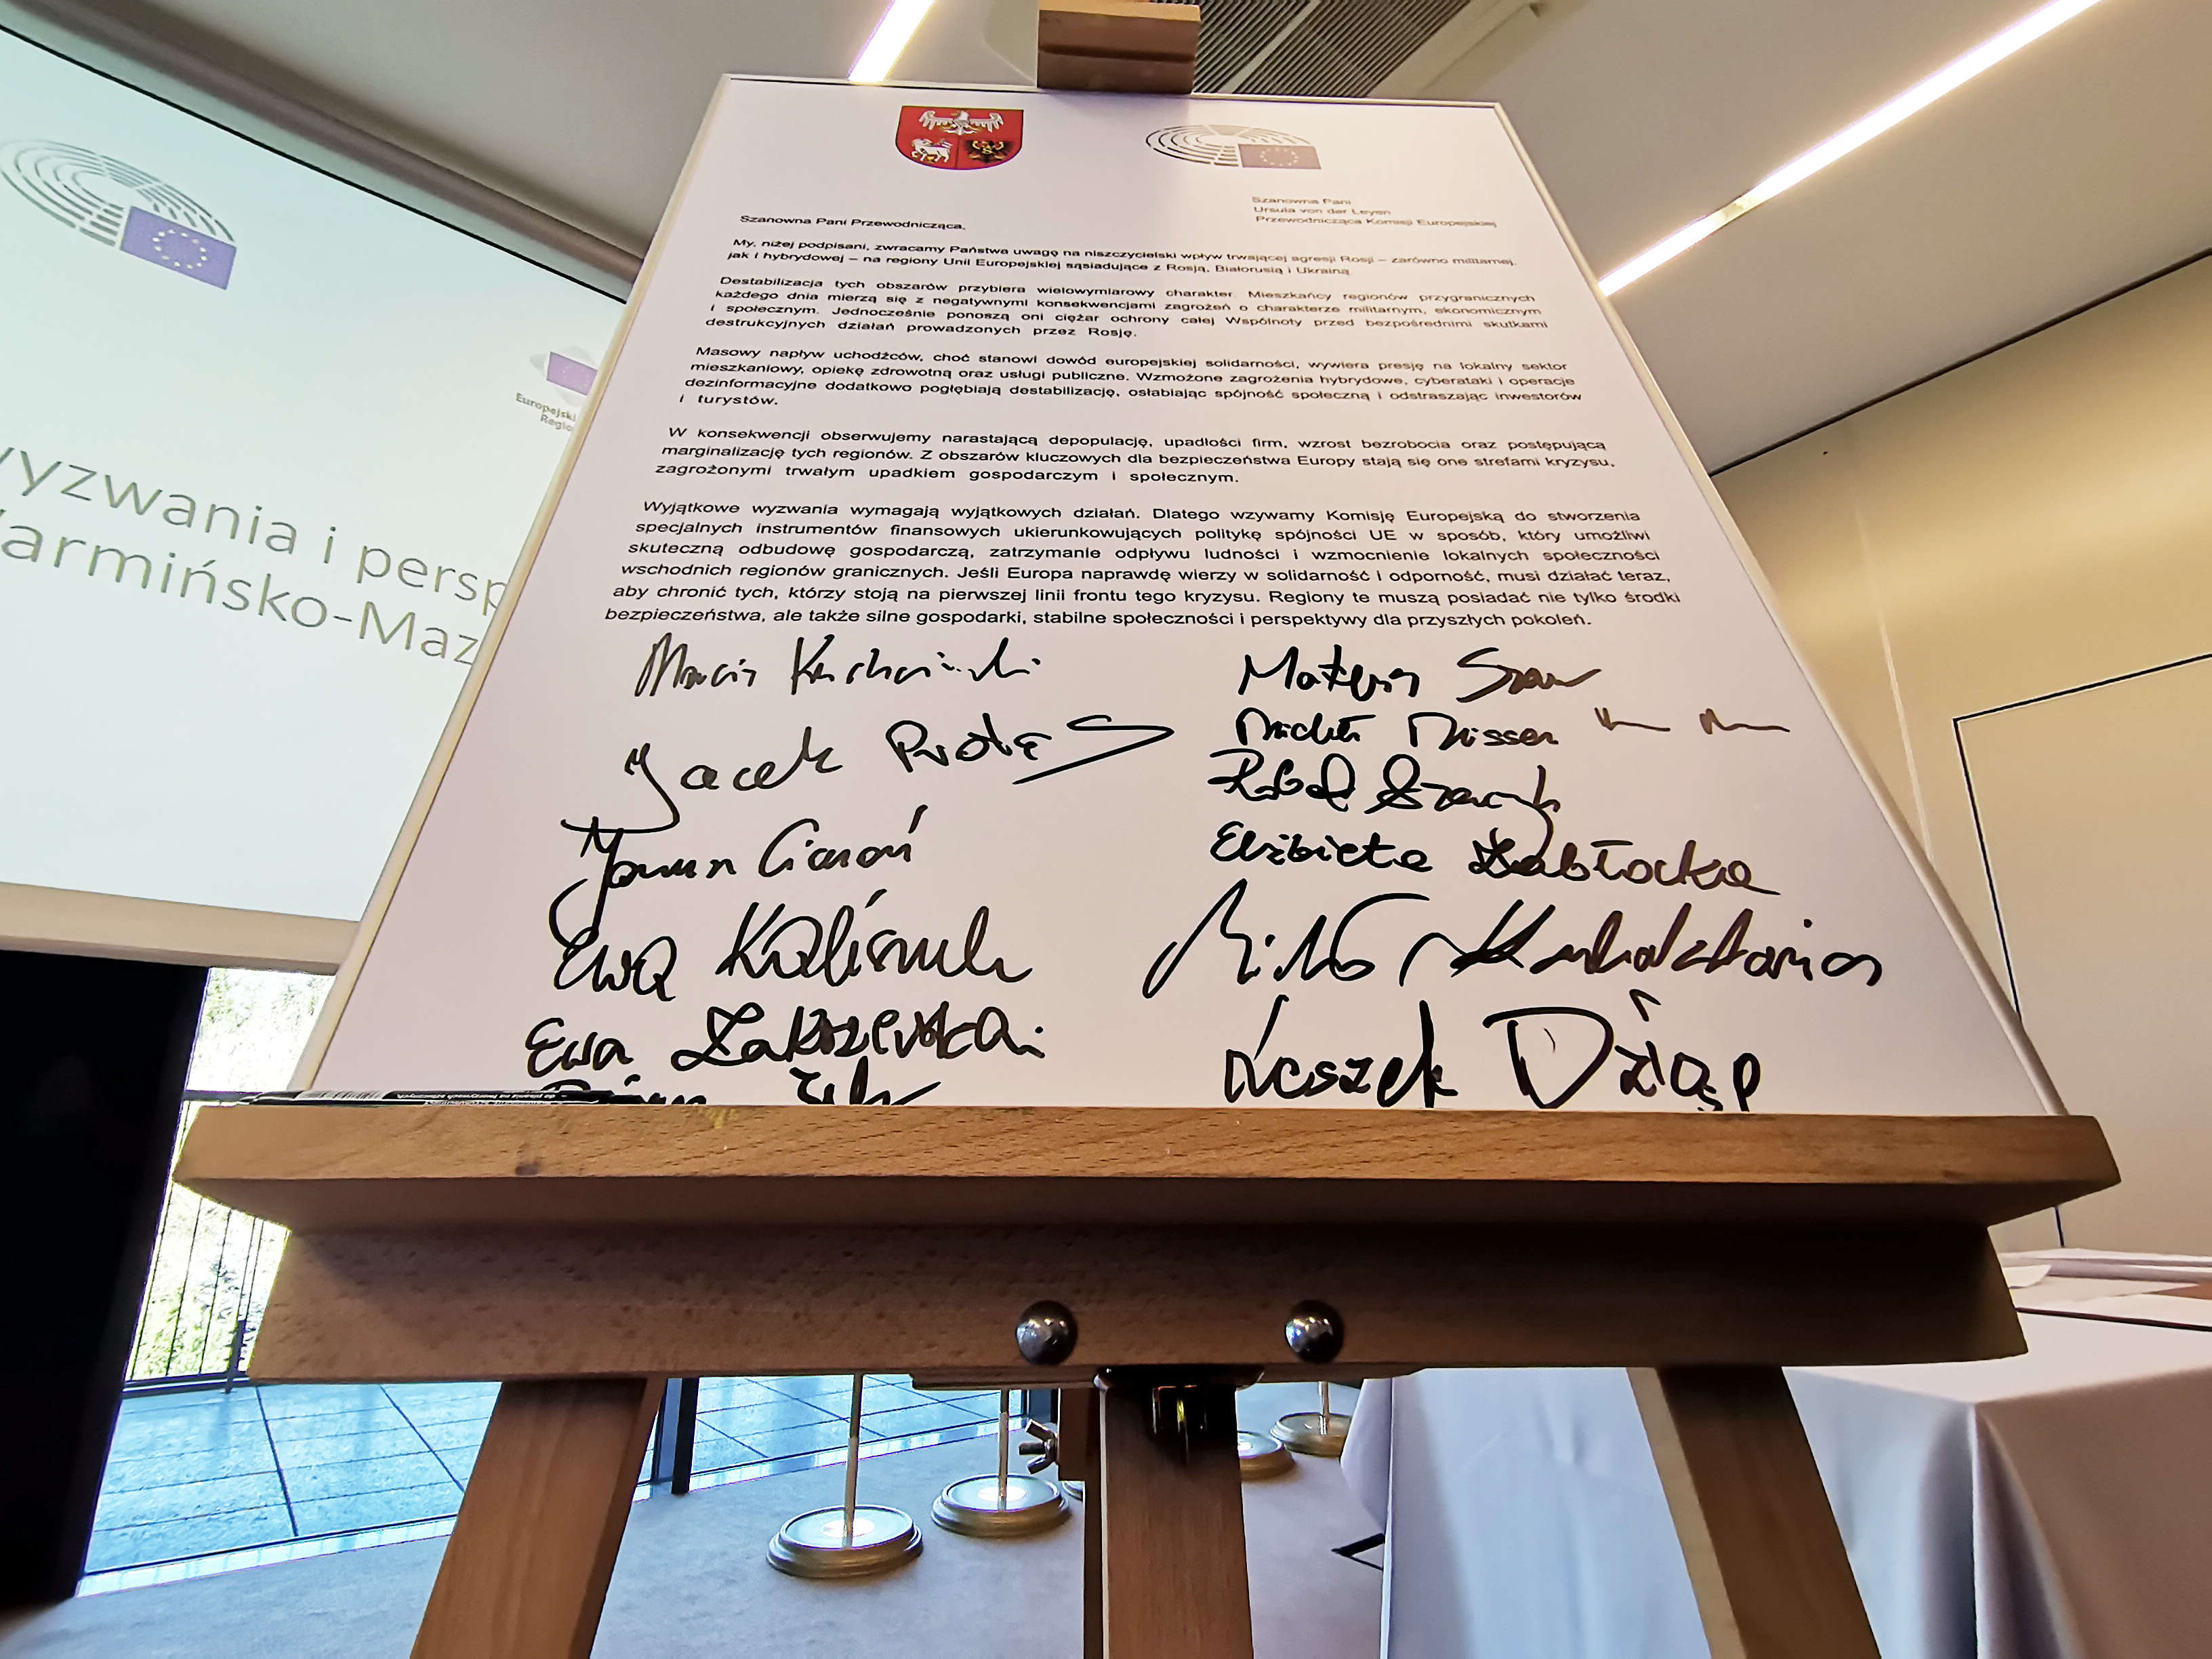 Szanowna Pani
Ursula von der Leyen
Przewodnicząca Komisji Europejskiej
Szanowna Pani Przewodnicząca,
My, niżej podpisani, zwracamy Państwa uwagę na niszczycielski wpływ trwającej agresji Rosji – zarówno militarnej,
jak i hybrydowej – na regiony Unii Europejskiej sąsiadujące z Rosją, Białorusią i Ukrainą.
Destabilizacja tych obszarów przybiera wielowymiarowy charakter. Mieszkańcy regionów przygranicznych
każdego dnia mierzą się z negatywnymi konsekwencjami zagrożeń o charakterze militarnym, ekonomicznym
i społecznym. Jednocześnie ponoszą oni ciężar ochrony całej Wspólnoty przed bezpośrednimi skutkami
destrukcyjnych działań prowadzonych przez Rosję.
Masowy napływ uchodźców, choć stanowi dowód europejskiej solidarności, wywiera presję na lokalny sektor
mieszkaniowy, opiekę zdrowotną oraz usługi publiczne. Wzmożone zagrożenia hybrydowe, cyberataki i operacje
dezinformacyjne dodatkowo pogłębiają destabilizację, osłabiając spójność społeczną i odstraszając inwestorów
i turystów.
W konsekwencji obserwujemy narastającą depopulację, upadłości firm, wzrost bezrobocia oraz postępującą
marginalizację tych regionów. Z obszarów kluczowych dla bezpieczeństwa Europy stają się one strefami kryzysu,
zagrożonymi trwałym upadkiem gospodarczym i społecznym.
Wyjątkowe wyzwania wymagają wyjątkowych działań. Dlatego wzywamy Komisję Europejską do stworzenia
specjalnych instrumentów finansowych ukierunkowujących politykę spójności UE w sposób, który umożliwi
skuteczną odbudowę gospodarczą, zatrzymanie odpływu ludności i wzmocnienie lokalnych społeczności
wschodnich regionów granicznych. Jeśli Europa naprawdę wierzy w solidarność i odporność, musi działać teraz,
aby chronić tych, którzy stoją na pierwszej linii frontu tego kryzysu. Regiony te muszą posiadać nie tylko środki
bezpieczeństwa, ale także silne gospodarki, stabilne społeczności i perspektywy dla przyszłych pokoleń.
Marcin
Jacek Protas
Michał Missan
Elżbieta Zabłocka
Ewa Kaliszuk
Ewa Zakrzewska
Leszek
Europejski
wyzwania i persp
Warmińsko-Maz